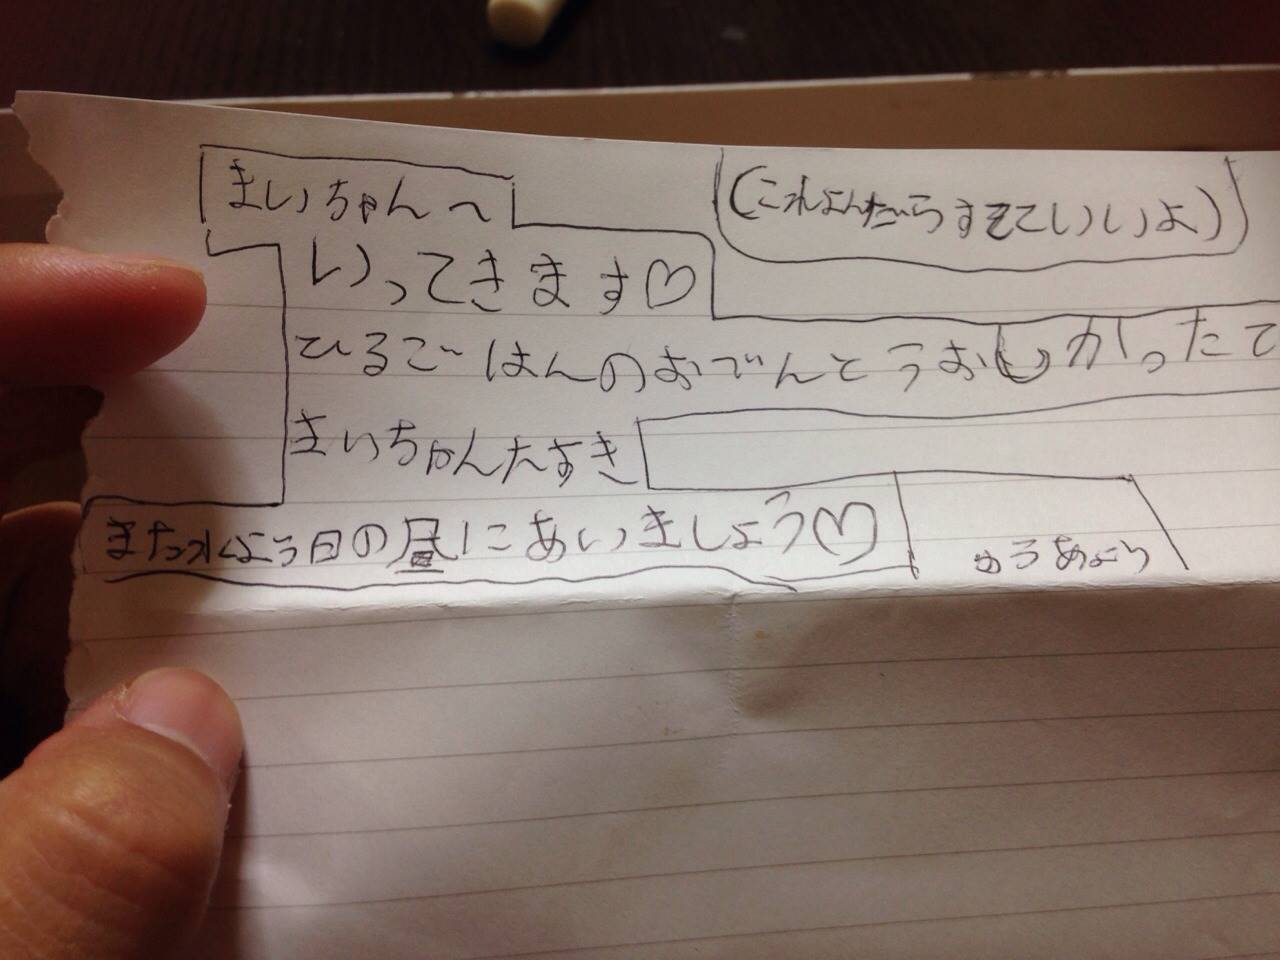 まいちゃんへ
(これよんだらすてていいよ)
いってきます♡
ひるごはんのおべんとうおいしかったて
まいちゃんたすき
また水よう日の昼にあいましょう♡
ゅうあより